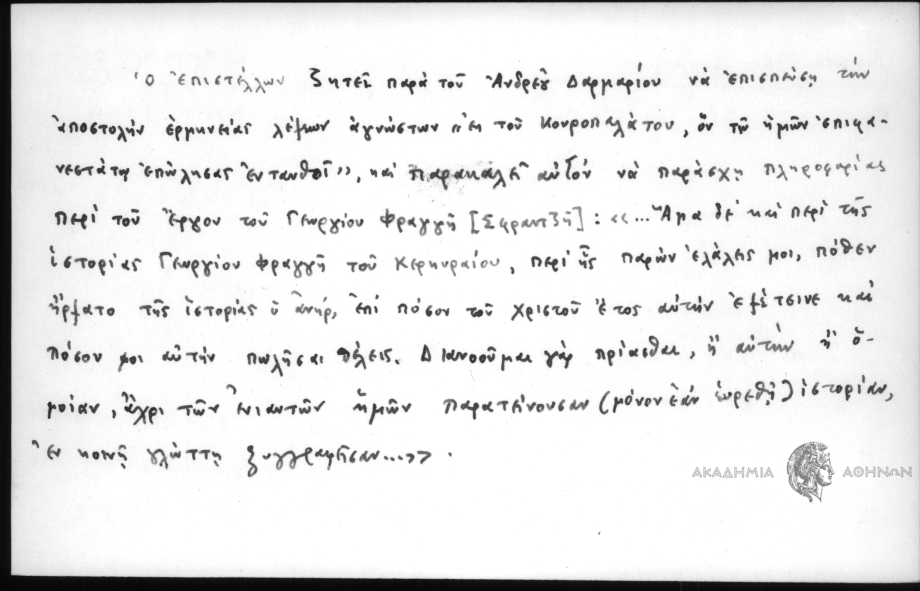 Ὁ ἐπιστέλλων ζητεῖ παρὰ τοῦ Ἀνδρέου Δαρμαρίου νὰ ἐπισπεύσῃ τὴν
ἀποστολὴν ἑρμηνείας λέξεων ἀγνώστων "ἐκ τοῦ Κουροπαλάτου, ὃν τῷ ἡμῶν ἐπιφα-
νεστάτῳ ἐπώλησας ἐνταυθοῖ", καὶ παρακαλεῖ αὐτὸν νὰ παράσχῃ πληροφορίας
περὶ τοῦ ἔργου τοῦ Γεωργίου Φραγγῆ [Σφραντζῆ]: «...Ἅμα δὲ καὶ περὶ τῆς
ἱστορίας Γεωργίου Φραγγῆ τοῦ Κερκυραίου, περὶ ἧς παρὼν ἐλάλεις μοι, πόθεν
ἤρξατο τῆς ἱστορίας ὁ ἀνήρ, ἐπὶ πόσον τοῦ Χριστοῦ ἔτος αὐτὴν ἐξέτεινε καὶ
πόσου μοι αὐτὴν πωλῆσαι θέλεις. Διανοοῦμαι γὰρ πρίασθαι, ἢ αὐτὴν ἢ ὁ-
μοίαν, ἄχρι τῶν ἐνιαυτῶν ἡμῶν παρατείνουσαν (μόνον ἐὰν εὑρεθῇ) ἱστορίαν,
ἐν κοινῇ γλώττῃ ξυγγραφεῖσαν...».
ΑΚΑΔΗΜΙΑ ΑΘΗΝΩΝ